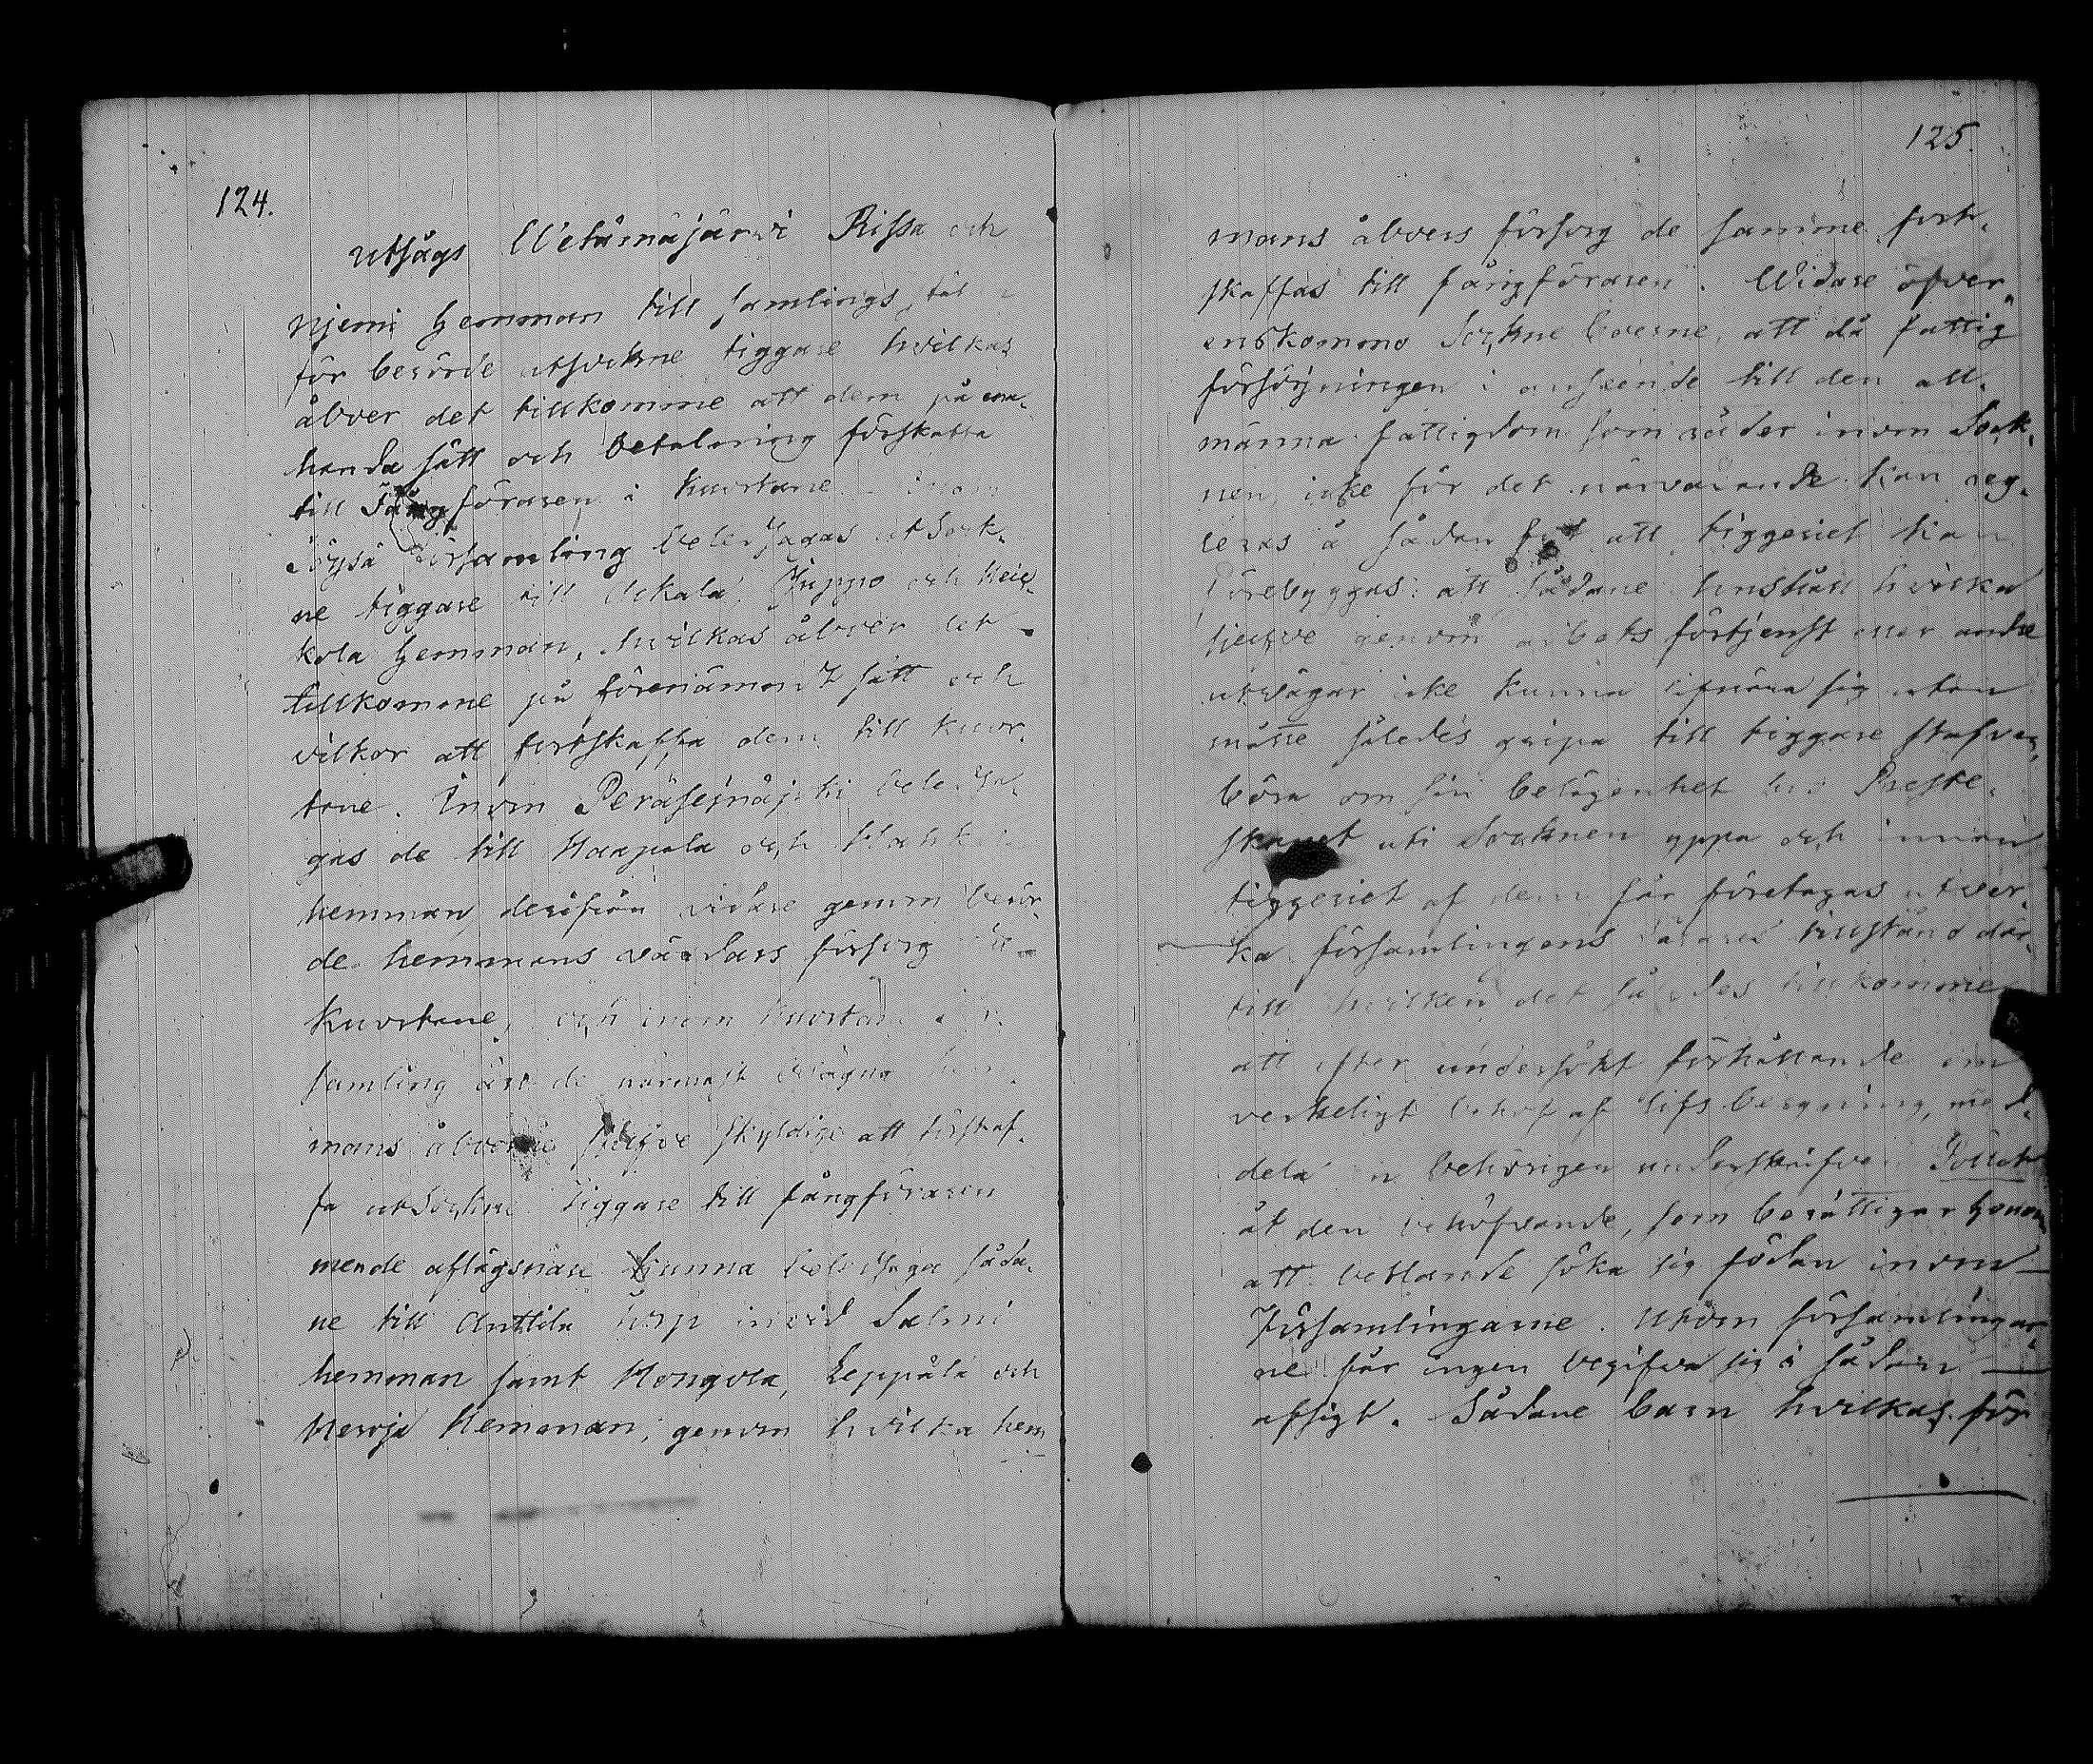 124.
utsågs Wetämäjärvi Rissa och
njemi hemman till samlings
för berörde utsockne tiggare hvilkas
åboer det tillkomme att dem på ena-
handa sätt och betalning förskaffa
till Fångföraren i Kuortane
Töysä församling beledsagas utsock-
ne tiggare till Alkala Juppo och Hei-
kola hemman, hvilkas åboer det
tillkomme på förenämnda sätt och
vilkor att fortskaffa dem till Kuor-
tane. Inom Peräseinäjoki beledsa-
gas de till Haapala och
hemman derifrån vidare genom berör-
de hemmans värdars försorg till
Kuortane, och inom Kuortane för-
samling äro de närmast belägna hem-
mans åboerne sjelfve skyldige att förskaf-
fa utsockne tiggare till fångföraren
mende aflägsnare kunna beledsaga såda-
ne till Anttila invid Salmi
hemman samt Hongola, Leppälä och
Heroja Hemman, genom hvilka hem
125.
mans åboers försorg de samme fort-
skaffas till fångföraren. Widare öfver-
enskommo Sockneboerne, att då fattig
försörjningen i anseende till den all-
männa fattigdom som råder inom Sock-
nen, icke för det närvarande kan reg-
leras å sådan fot att tiggeriet kan
förebyggas: att sådane hushåll hvilka
sjelfve genom arbets förtjenst eller andre
utvägar icke kunna lifnära sig utan
måste således gripa till tiggare stafven,
böra om sin belägenhet hos Preste-
skapet uti Socknen yppa och innan
tiggeriet af dem får företagas utver-
ka församlingens lärares tillstånd der-
till hvilken det således tillkommer
att efter undersökt förhållande om
verkeligt behof af lifs bergning, med-
dela en behörigen underskrifven Sollet
åt den behöfvande, som berättigar honom
att bettlande söka sig födan inom
Församlingarne. Utom församlingar-
ne får ingen begifva sig i sådan
afsigt. Sådane barn hvilkas för